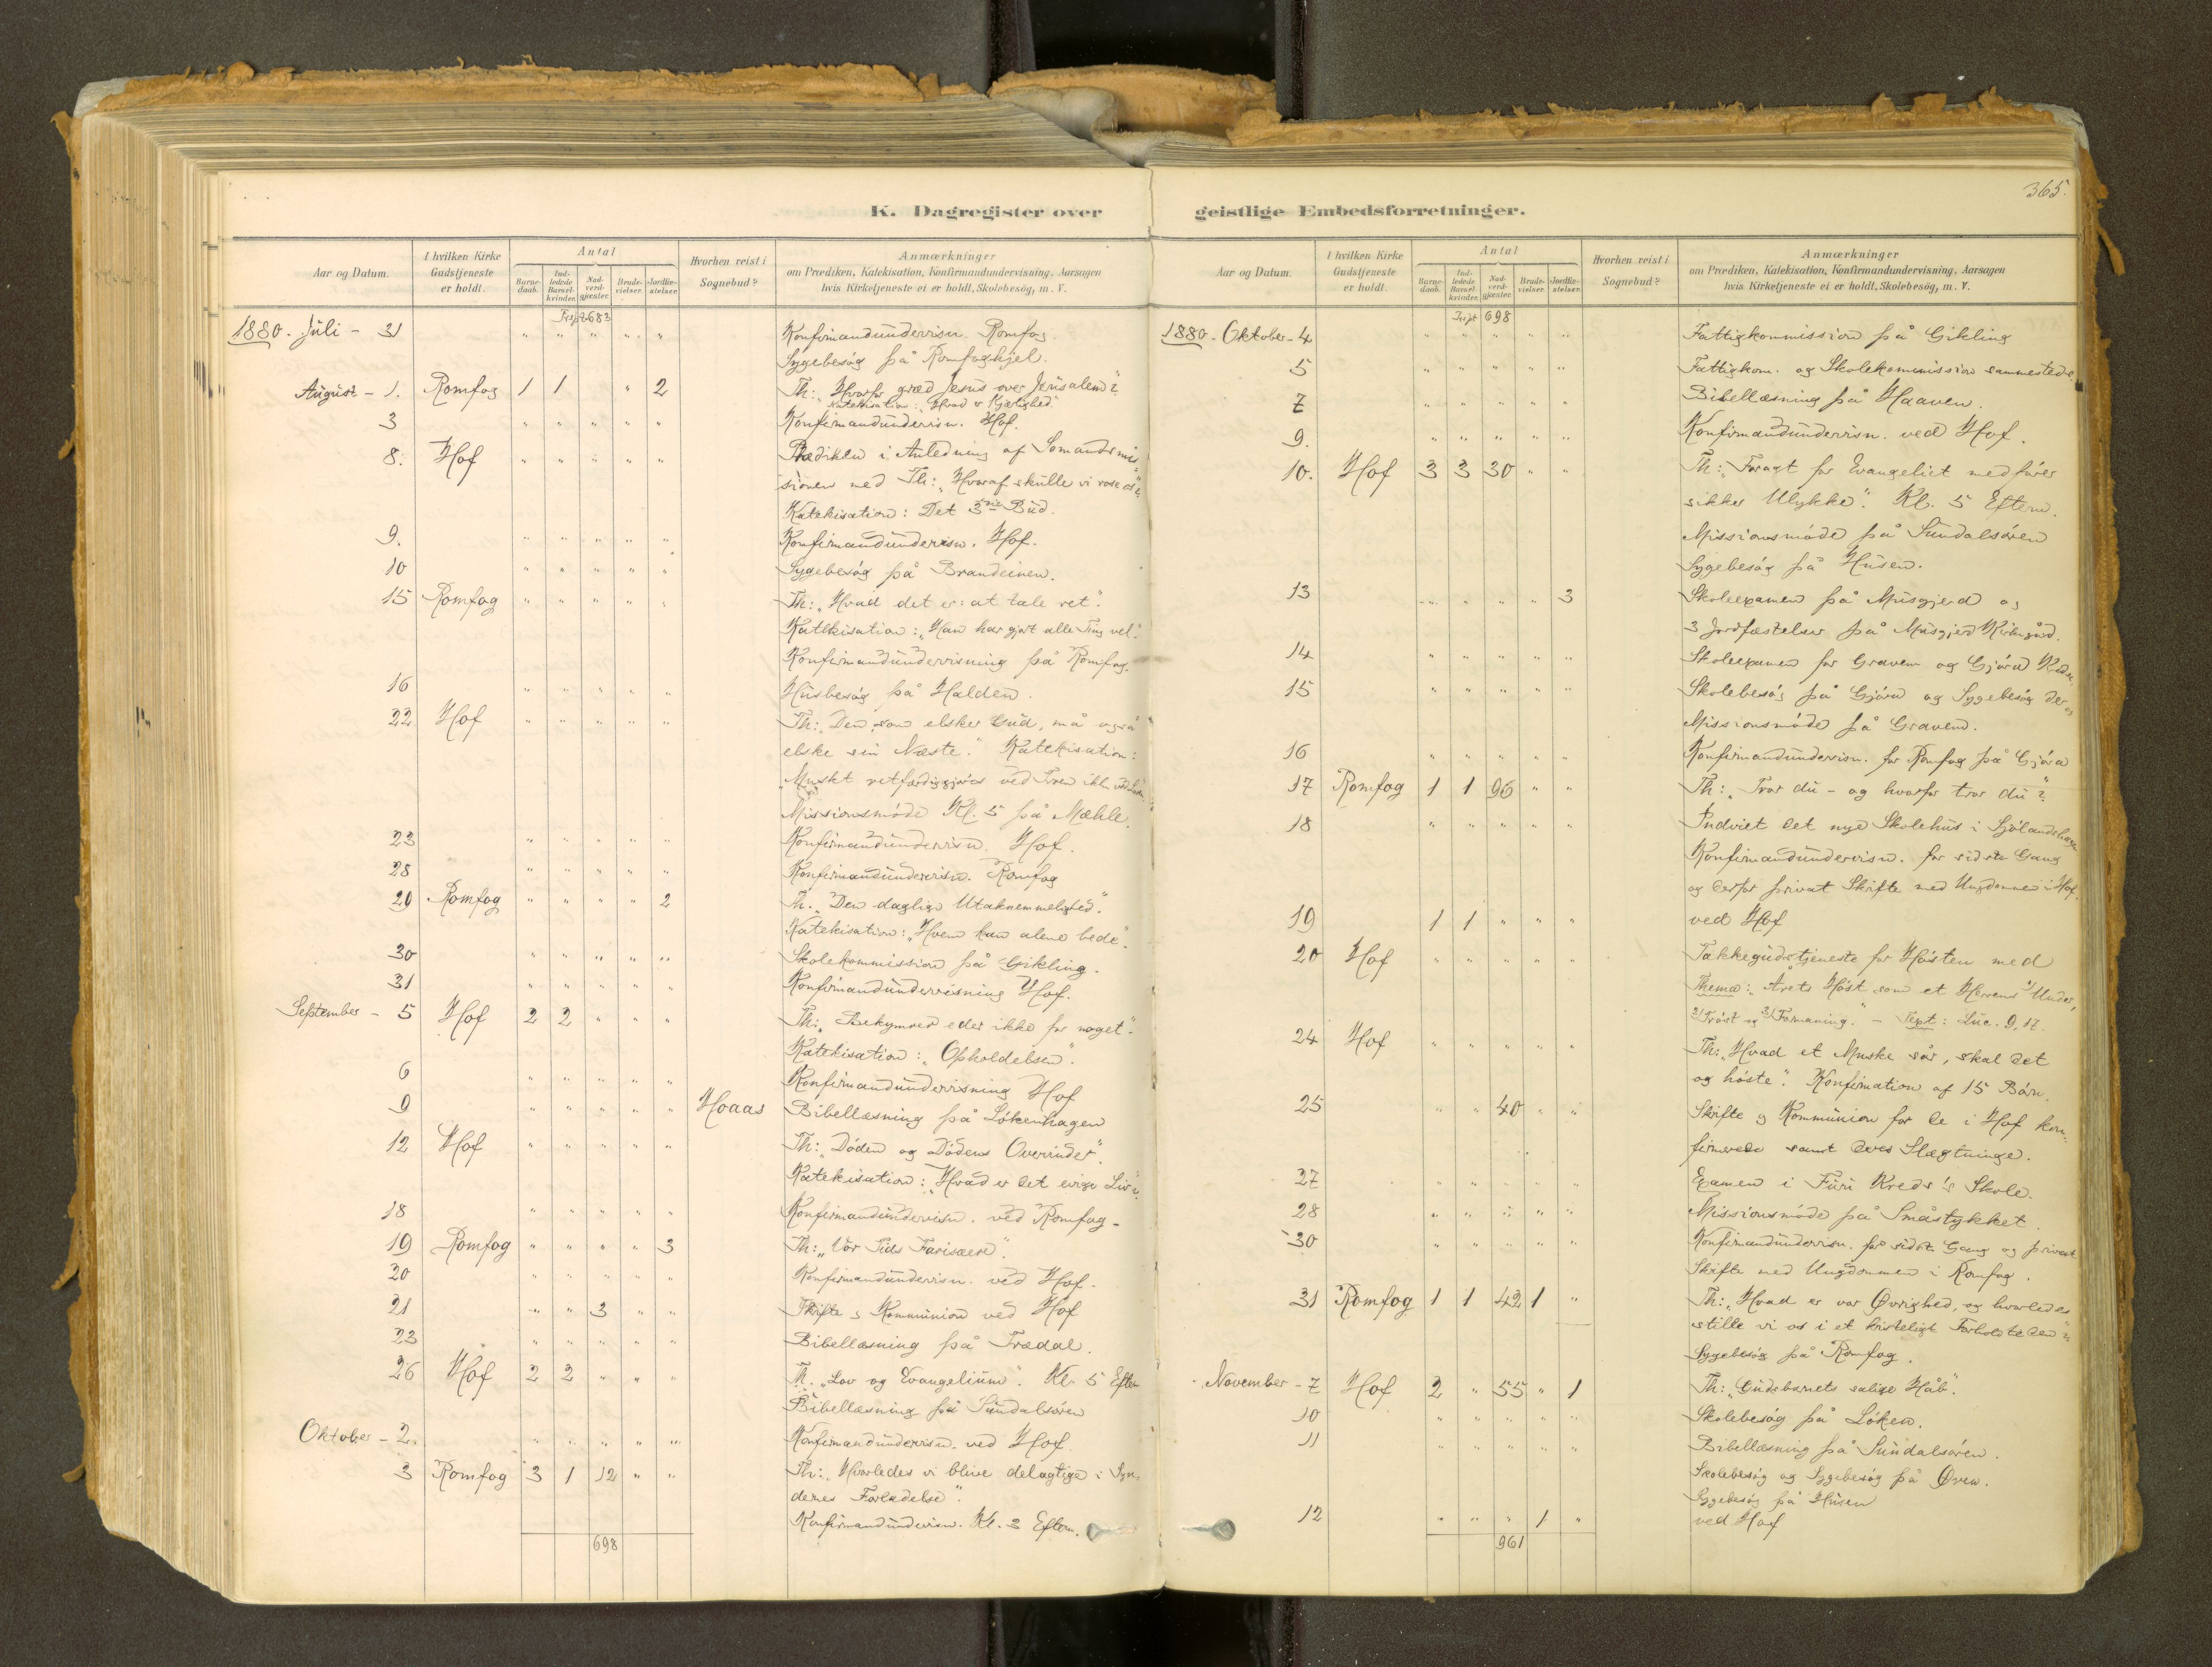 K. Dagregister over
Aar og Datum.
I hvilken Kirke Gudstjeneste er holdt.
Antal
Barne-daab.
Ind-ledede Barsel-kvinder.
Nad-verd-gjæster.
Brude-vielser.
Jordfæ-stelser.
Hvorhen reist i Sognebud?
Anmærkninger
om Prædiken, Katekisation, Konfirmandundervisning, Aarsagen
hvis Kirketjeneste ei er holdt, Skolebesög, m. V.
683
1880. Juli - 31 " " " " " Konfirmandundervisn. Romfog.
Sygebesög på Romfoghjel.
August - 1. Romfog 1 1 " 2 Th: "Hvorfor græd Jesus over Jerusalem"?
Katekisation: "Hvad er Kjærlighed."
3 " " " " " Konfirmandundervisn. Hof.
8. Hof " " " " " Prædiken i Anledning af Sømandsmis-
sionen med Th: "Hvoraf skulle vi rose os"?
Katekisation: Det 3die Bud.
9. " " " " " Konfirmandundervisn. Hof.
10 " " " " " Sygebesög på Brandeinen.
15 Romfog " " " " " Th: "Hvad det er: at tale ret".
Katekisation: "Han har gjort alle Ting vel".
Konfirmandundervisning på Romfog.
16 " " " " " Husbesög på Halden.
22 Hof " " " " " Th: "Den, som elsker Gud, må også
elske sin Næste." Katekisation:
"Mnskt retfærdiggjöres ved Tron ikke ved
Missionsmöde Kl. 5 på Mæhle.
23 " " " " " Konfirmandundervisn. Hof.
28 " " " " " Konfirmandundervisn. Romfog
29 Romfog " " " " 2 Th. "Den daglige Utaknemmelighed".
Katekisation: "Hvem kan alene bede".
30 " " " " " Skolekommission på Gikling.
31 " " " " " Konfirmandundervisning Hof.
September - 5 Hof 2 2 " " " Th: "Bekymrer eder ikke for noget".
Katekisation: "Opholdelsen".
6 " " " " " Konfirmandundervisning Hof
9 " " " " " Hoaas Bibellæsning på Lökenhagen
12 Hof " " " " " Th: "Döden og Dödens Overvinder".
Katekisation: "Hvad er det evige Liv"?
18 " " " " " Konfirmandundervisn. ved Romfog.
19 Romfog " " " " 3 Th: "Vor Tids Farisæere".
20 " " " " " Konfirmandundervisn. ved Hof.
21 " " 3 " " Skrifte & Kommunion ved Hof
23 " " " " " Bibellæsning på Trædal.
26 Hof 2 2 " " " Th. "Lov og Evangelium". Kl. 5 Efterm
Bibellæsning på Sundalsören
Oktober - 2. " " " " " Konfirmandundervisn. ved Hof.
3 Romfog 3 1 12 " " Th: "Hvorledes vi blive delagtige i Syn-
dernes Forladelse".
Konfirmandundervisn. Kl. 3 Efterm.
698
365.
geistlige Embedsforretninger.
Aar og Datum.
I hvilken Kirke Gudstjeneste er holdt.
Antal
Barne-daab.
Ind-ledede Barsel-kvinder.
Nad-verd-gjæster.
Brude-vielser.
Jordfæ-stelser.
Hvorhen reist i Sognebud?
Anmærkninger
om Prædiken, Katekisation, Konfirmandundervisning, Aarsagen
hvis Kirketjeneste ei er holdt, Skolebesög, m. V.
698
1880. Oktober - 4 " " " " " Fattigkommission på Gikling
5 " " " " " Fattigkom. og Skolekommission sammesteds.
7 " " " " " Bibellæsning på Haaven.
9. " " " " " Konfirmandundervisn. ved Hof.
10. Hof 3 3 30 " " Th: "Foragt for Evangeliet medförer
sikker Ulykke". Kl. 5 Efterm.
Missionsmöde på Sundalsören
Sygebesög på Husen.
13 " " " " 3 Skoleexamen på Musgjerd og
3 Jordfæstelser på Musgjerd Kirkegård.
14 " " " " " Skoleexamen for Gravem og Gjöra
15 " " " " " Skolebesög på Gjöra og Sygebesög der og
Missionsmöde på Gravem.
16 " " " " " Konfirmandundervisn. for Romfog på Gjöra
17 Romfog 1 1 96 " " Th: "Tror du - og hvorfor tror du"?
18 " " " " " Indviet det nye Skolehus i
Konfirmandundervisn. for sidste Gang
og derfor privat Skrifte med Ungdommen i Hof.
19 1 1 " " " ved Hof
20 Hof " " " " " Takkegudstjeneste for Hösten med
Thema: "Årets Höst som et Herrens 1) Under,
2) Tröst og 3) Formaning." - Text: Luc. 9, 17.
24 Hof " " " " " Th: "Hvad et Mnske sår, skal det
og höste". Konfirmation af 15 Börn.
25 " " 40 " " Skrifte & Kommunion for de i Hof kon-
firmerede samt deres Slægtninge.
27 " " " " " Examen i Furu Kreds's Skole.
28 " " " " " Missionsmöde på Småstykket.
30 " " " " " Konfirmandundervisn. for sidste Gang og privat
Skrifte med Ungdommen i Romfog.
31 Romfog 1 1 42 1 " Th: "Hvad er vor Øvrighed, og hvorledes
stille vi os i et kristeligt Forhold til den"?
Sygebesög på Romfog.
November - 7 Hof 2 " 55 " 1 Th: "Gudsbarnets salige Håb".
10 " " " " " Skolebesög på Löken.
11 " " " " " Bibellæsning på Sundalsören.
Skolebesög og Sygebesög på Øren.
Sygebesög på Husen
12 " " " 1 " ved Hof
961